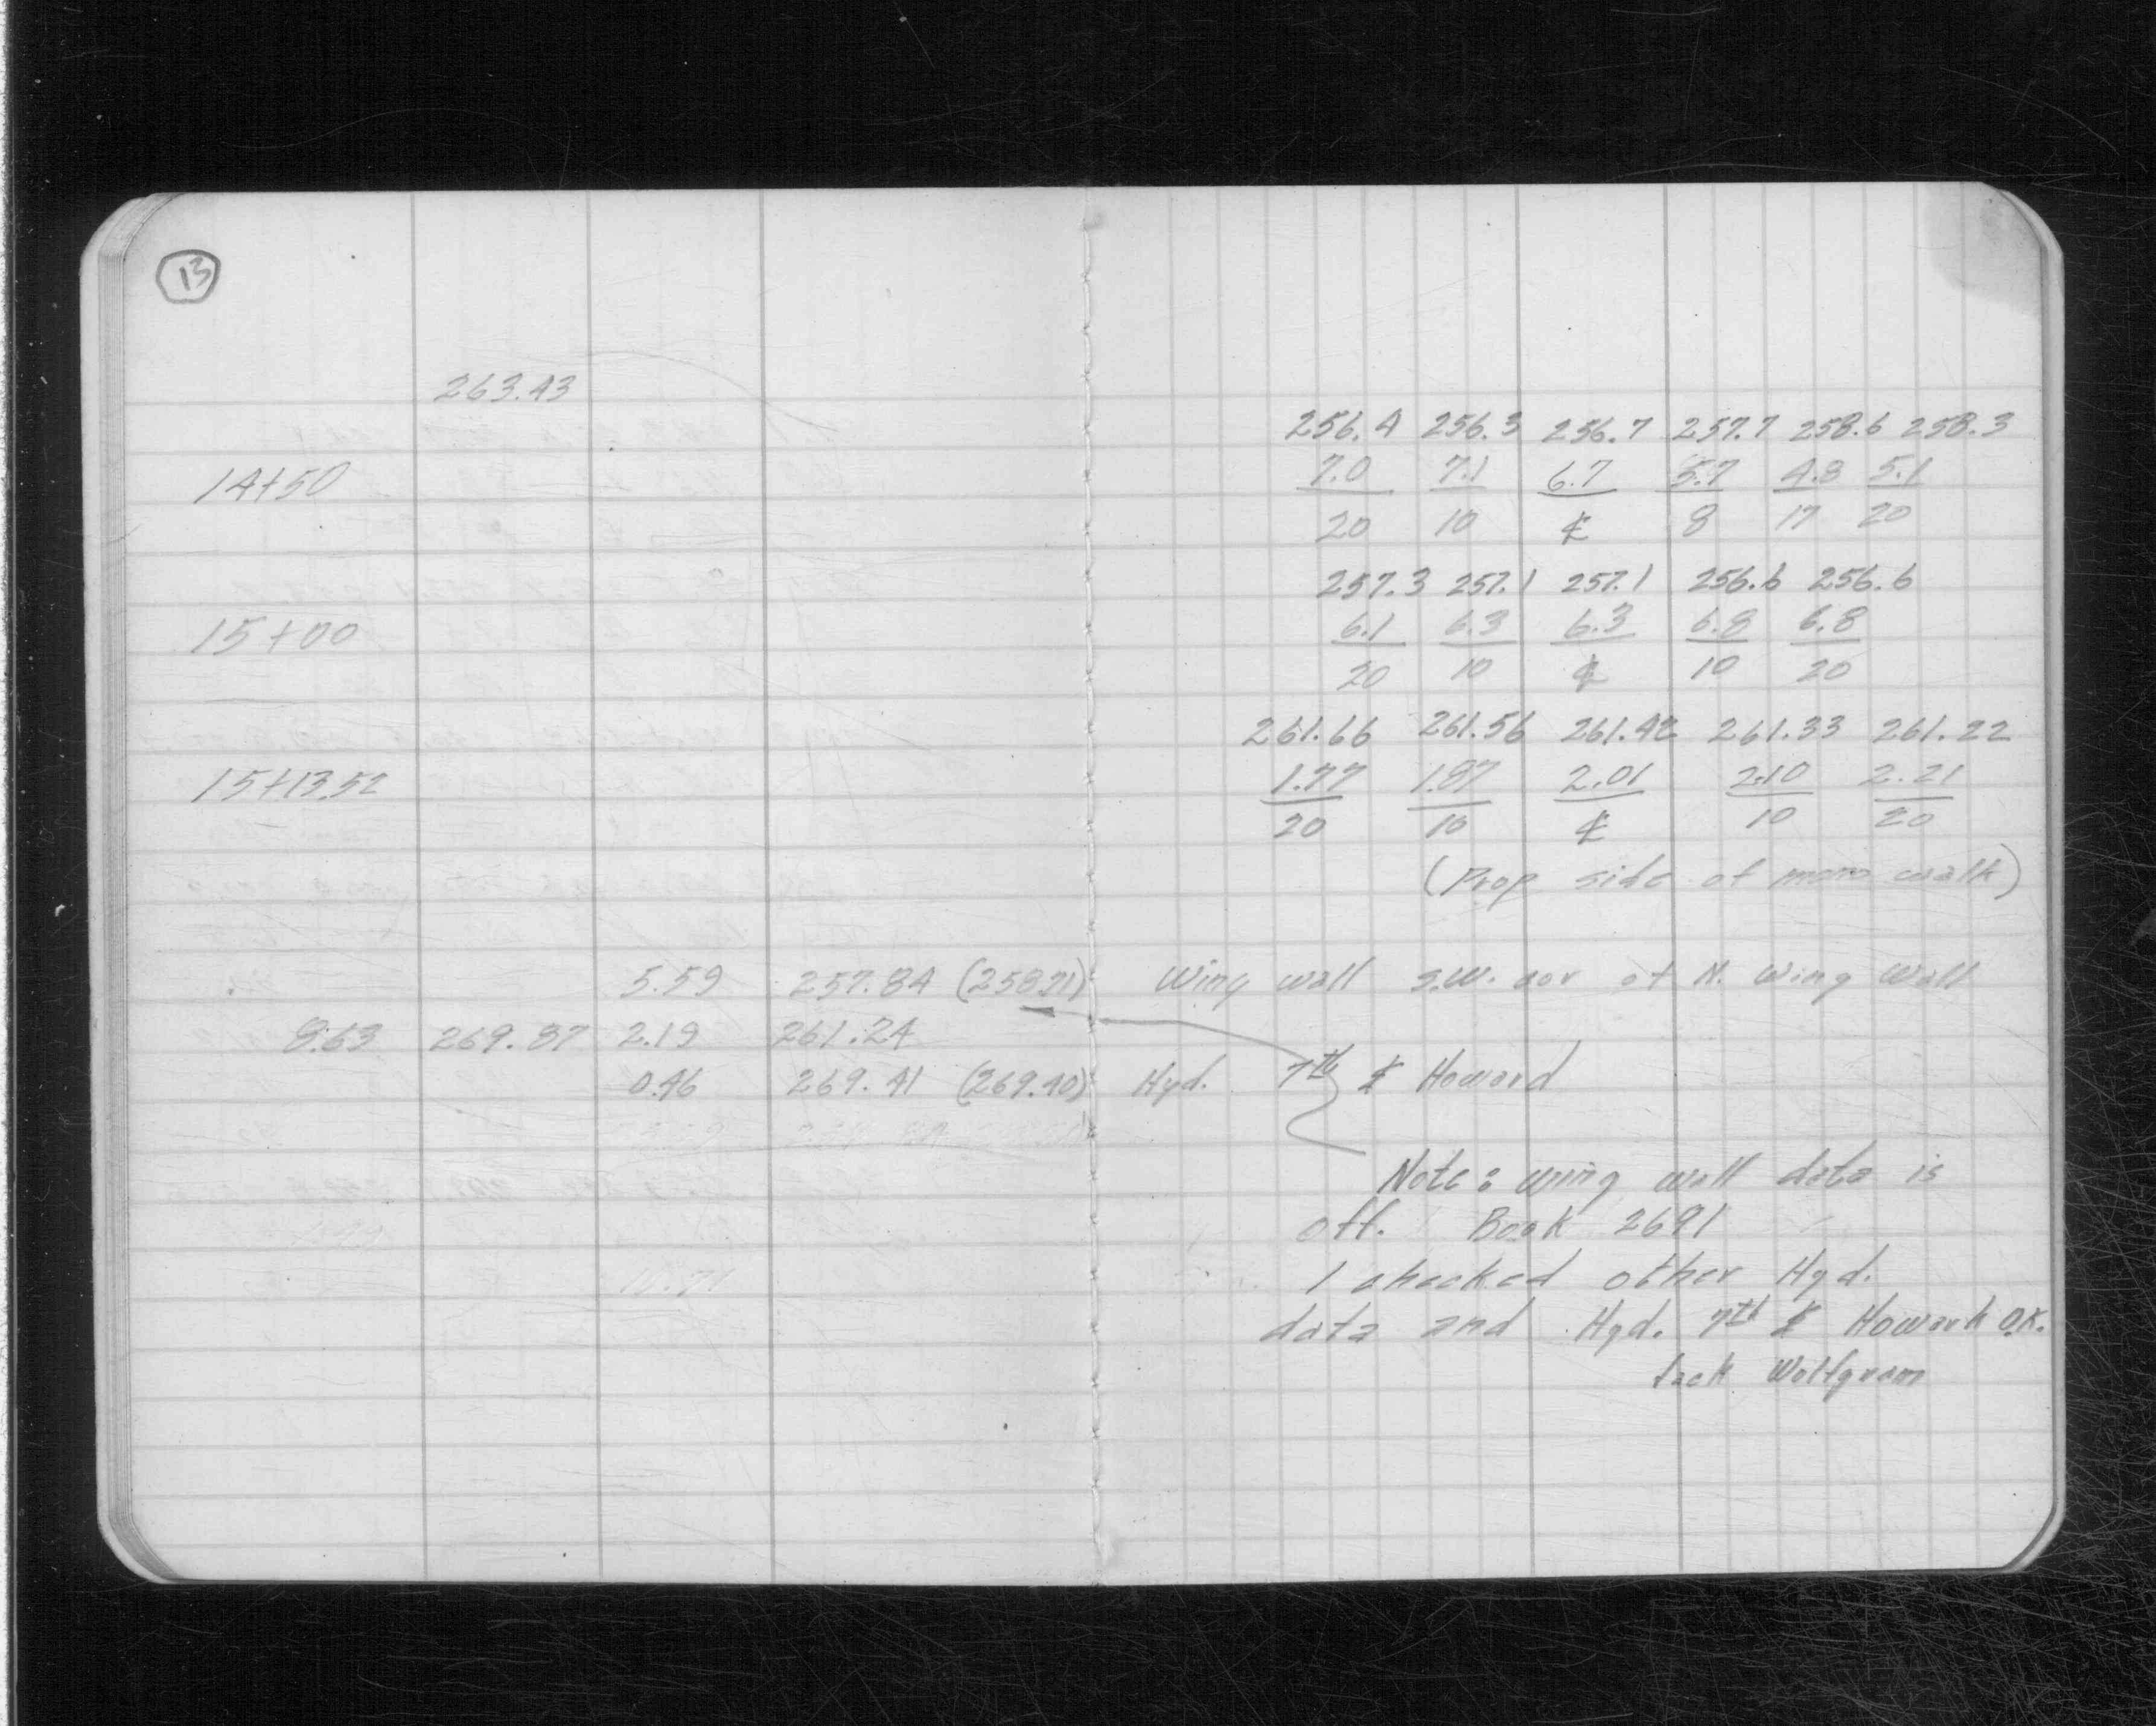 13
263.43
256.4 256.3 256.7 257.7 258.6 258.3
14+50 7.0 7.1 6.7 5.7 4.8 5.1
20 10 ℄ 8 17 20
257.3 257.1 257.1 256.6 256.6
15+00 6.1 6.3 6.3 6.8 6.8
20 10 ℄ 10 20
261.66 261.56 261.42 261.33 261.22
15+13.52 1.77 1.87 2.01 2.10 2.21
20 10 ℄ 10 20
(Prop side of mono walk)
5.59 257.84 (258.71) Wing wall S.W. cor of N. Wing Wall
8.63 269.87 2.19 261.24
0.46 269.41 (269.40) Hyd. 7th & Howard
Note: wing wall data is
off. Book 2691
I checked other Hyd.
data and Hyd. 7th & Howark O.K.
Jack Wolfgram